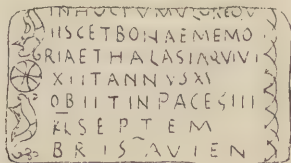 INHOCTVMVLOREQV
IISCETBONAEMEMO
RIAETHALASIAQVIVI
XIITANNVSXI
OBIITINPACESIII
KLSEPTEM
BRISAVIEN